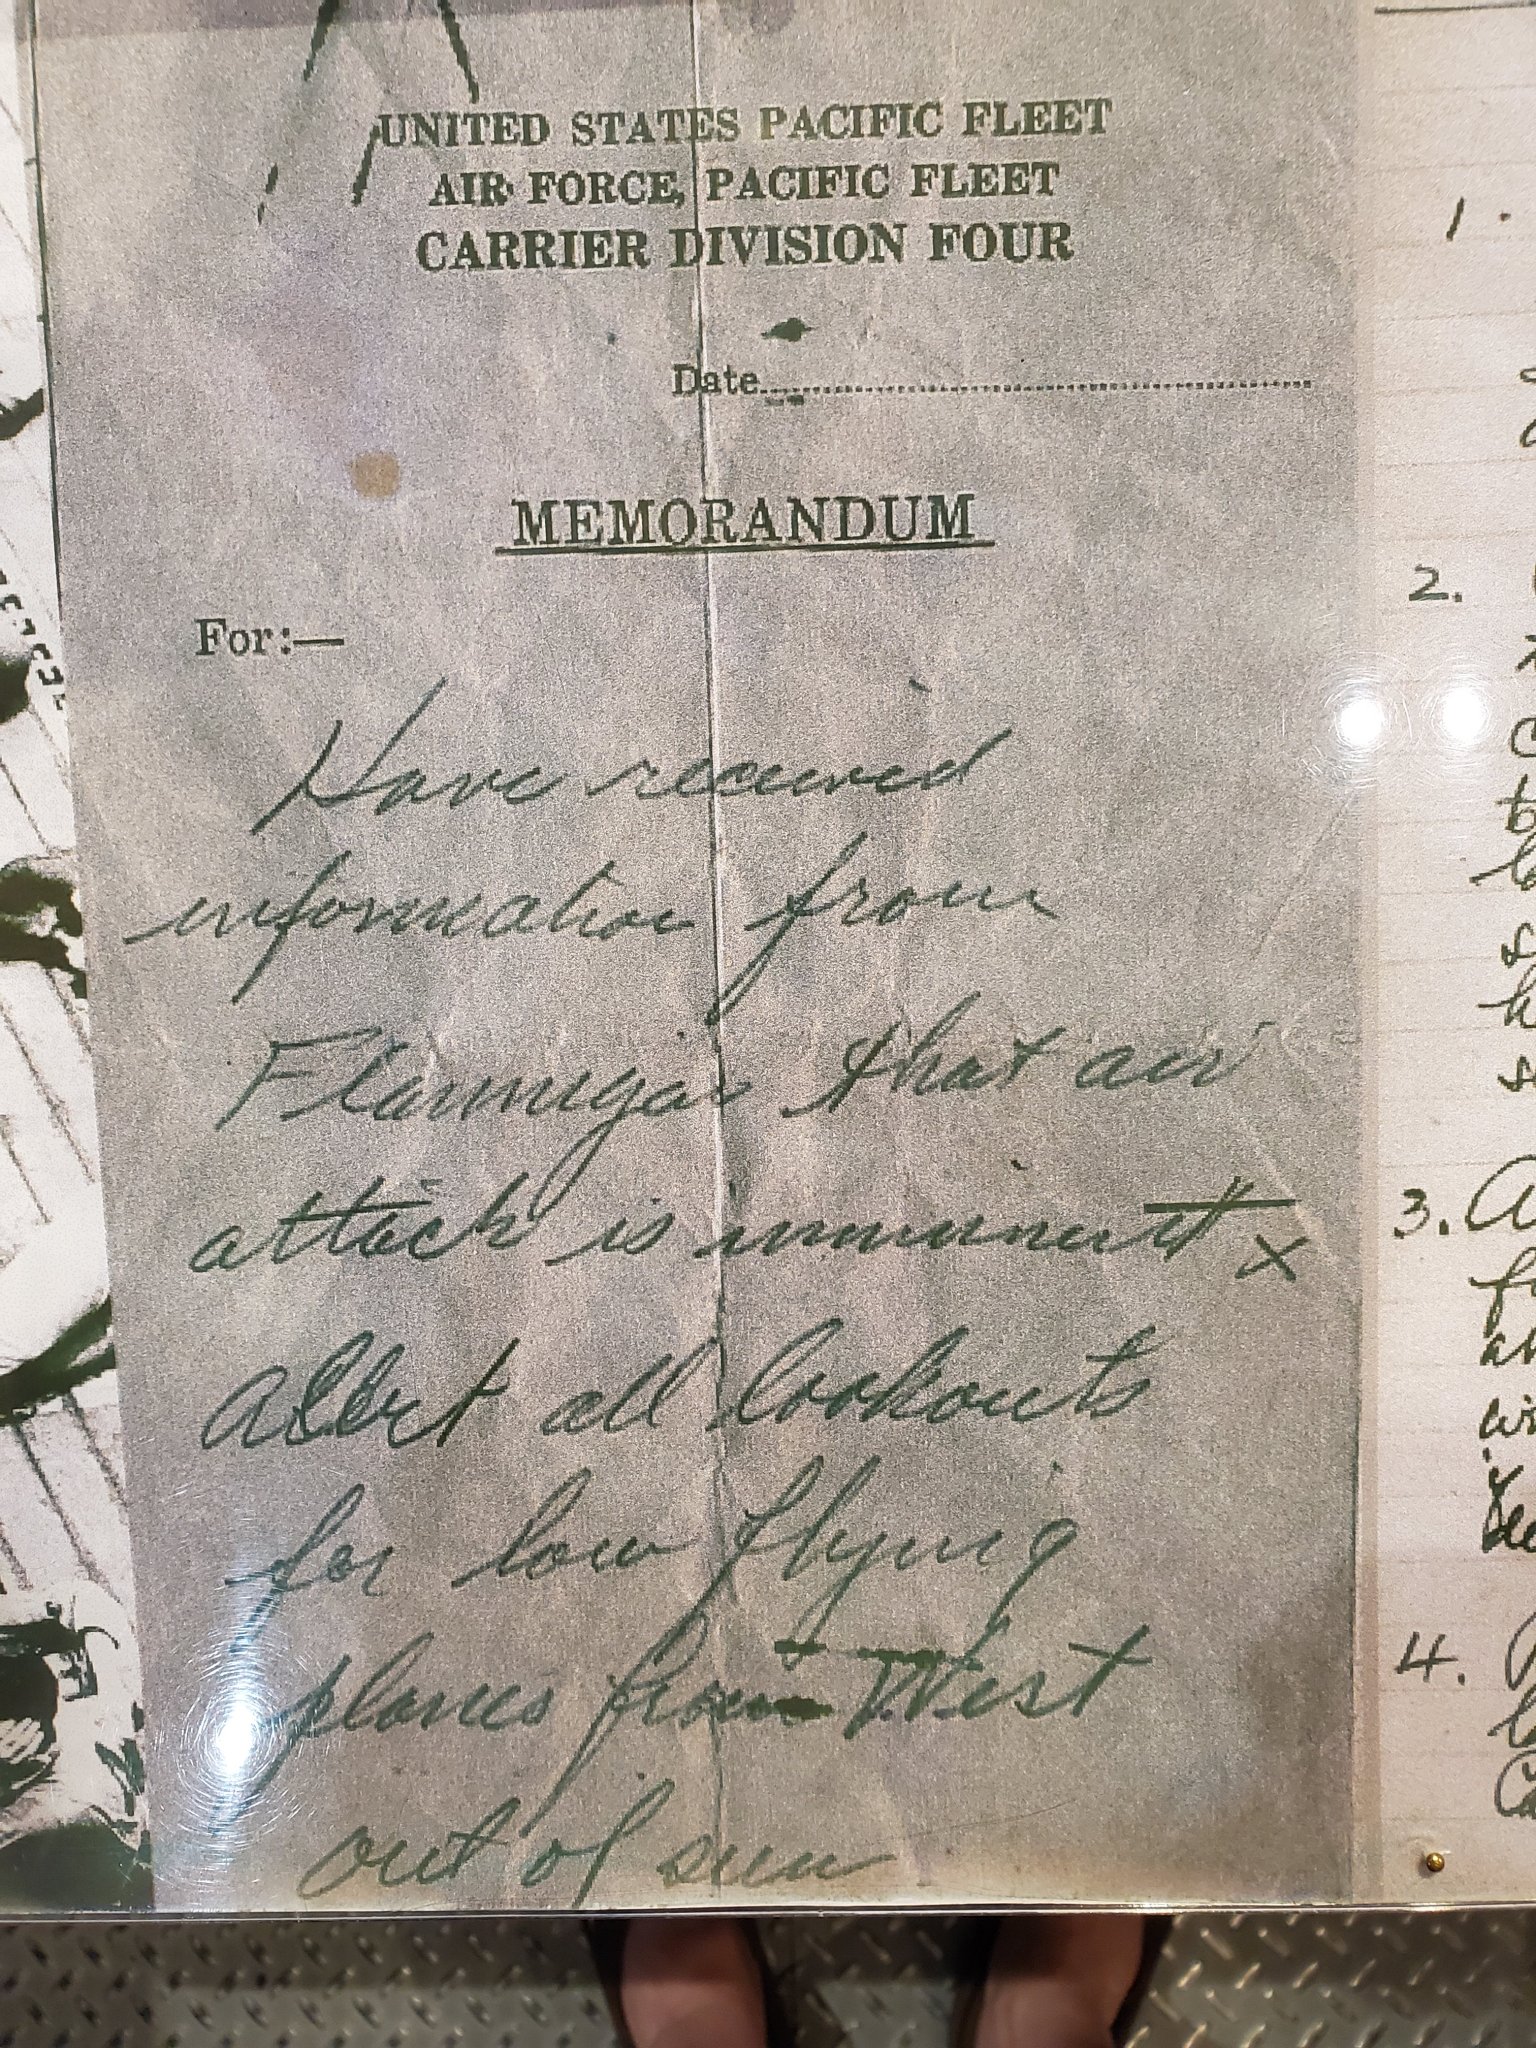 UNITED STATES PACIFIC FLEET
AIR FORCE, PACIFIC FLEET
CARRIER DIVISION FOUR
Date
MEMORANDUM
For:—
Have received
information from
that air
attack is imminent x
Alert all lookouts
for low flying
planes from West
out of sun
1.
2.
3.
4.